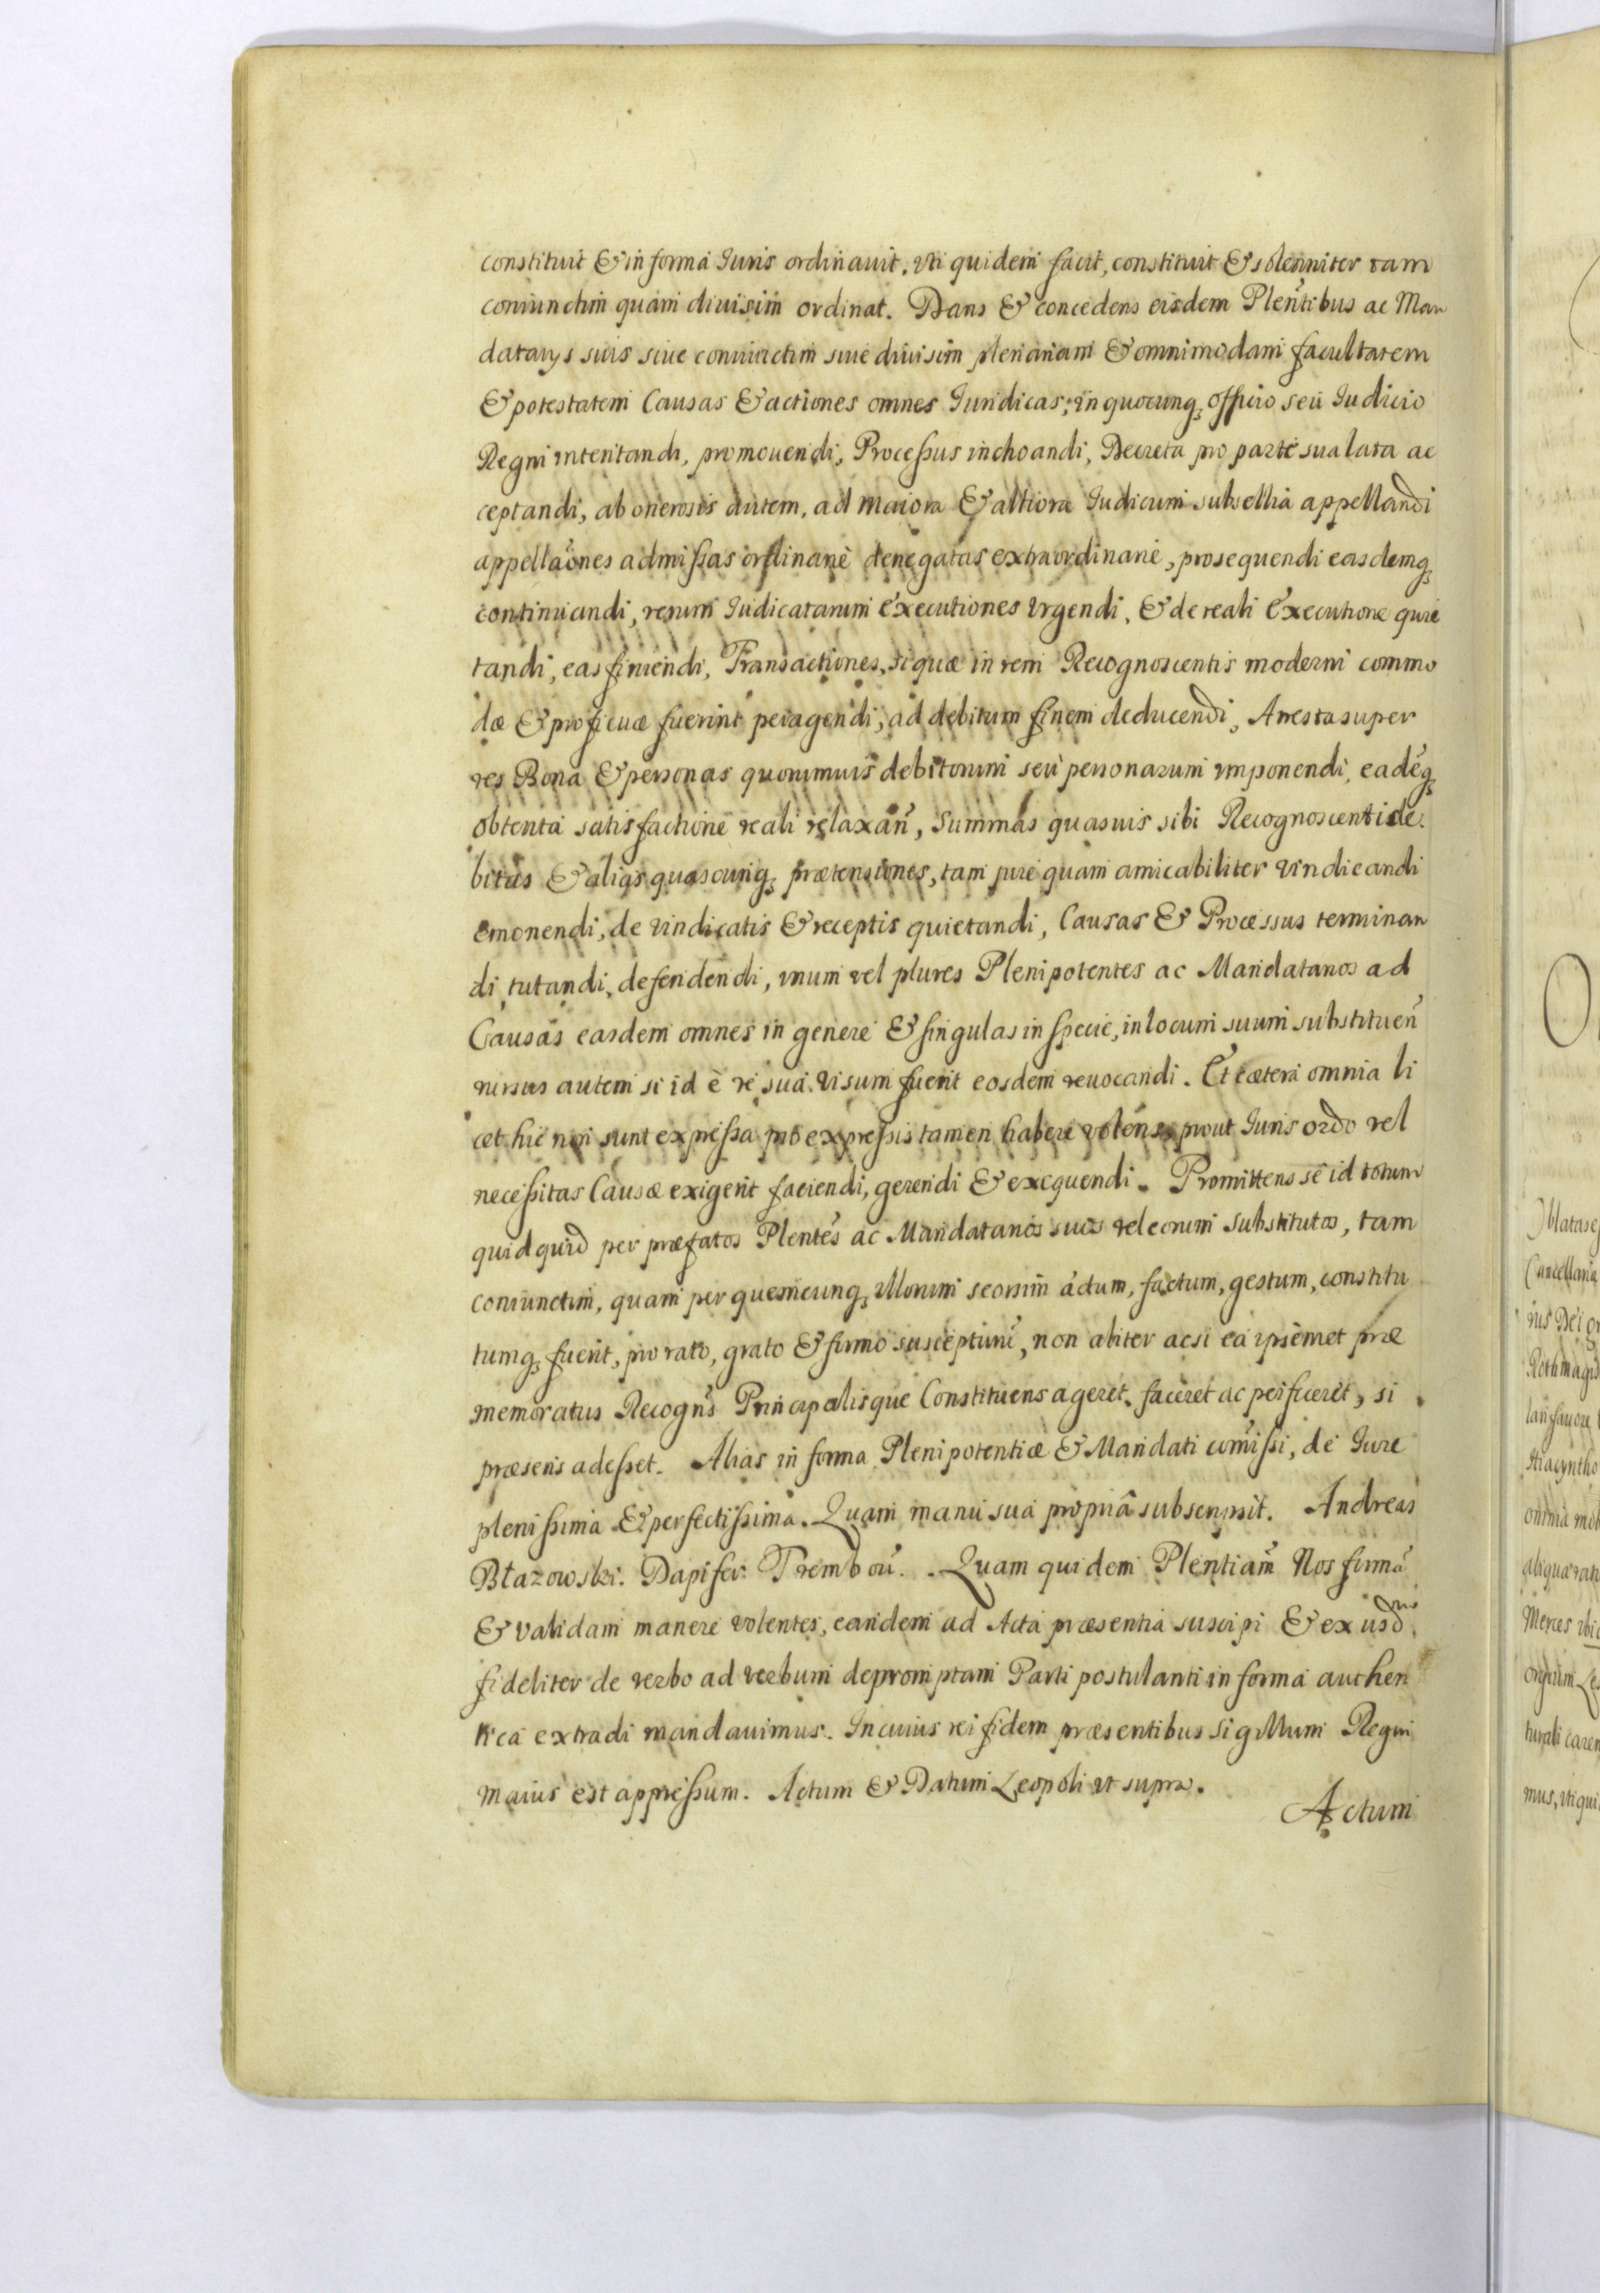 constituit & in forma Iuris ordinauit, uti quidem facit, constituit & solenniter tam
coniunctim quam diuisim ordinat. Dans & concedens eisdem Plen̄tibus ac Man
datarijs suis siue coniunctim siue diuisim plenariam & omnimodam facultatem
& potestatem Causas & actiones omnes Iuridicas, in quocunq₃ officio seu Iudicio
Regni intentandi, promouendi, Processus inchoandi, Decreta pro parte sua lata ac
ceptandi, ab onerosis autem, ad maiora & altiora Iudicium subsellia appellandi
appellao̅nes admissas ordinarie denegatas extraordinarie, prosequendi easdemq₃
continuandi, rerum Iudicatarum executiones vrgendi, & de reali Executione quie
tandi, eas finiendi, Transactiones, si quæ in rem Recognoscentis moderni commo
dæ & proficuæ fuerint peragendi, ad debitum finem deducendi, Aresta super
res Bona & personas quorumuis debitorum seu personarum imponendi, eadēq₃
obtenta satisfactione reali relaxan̄, Summas quasuis sibi Recognoscenti de
bitas & alias quascunq₃ prætensiones, tam jure quam amicabiliter vindicandi
emonendi, de vindicatis & receptis quietandi, Causas & Processus terminan
di tutandi, defendendi, vnum vel plures Plenipotentes ac Mandatarios ad
Causas easdem omnes in genere & singulas in specie, in locum suum substituen̄
rursus autem si id è re sua visum fuerit eosdem reuocandi. Et cætera omnia li
cet hic non sunt expressa pro expressis tamen habere volens, prout Iuris ordo vel
necessitas Causæ exigerit faciendi, gerendi & exequendi. Promittens se id totum
quidquid per præfatos Plentes̄ ac Mandatarios suos vel eorum substitutos, tam
coniunctim, quam per quemcunq₃ illorum seorsim actum, factum, gestum, constitu
tumq₃ fuerit, pro rato, grato & firmo suscepturū, non aliter acsi ea ipsemet præ
memoratus Recogn̄s Principalisque Constituens ageret, faceret ac perficeret, si
præsens adesset. Alias in forma Plenipotentiæ & Mandati com̄issi, de Iure
plenissima & perfectissima. Quam manu sua propriâ subscripsit. Andreas
Błazowski. Dapifer. Trembou̅. Quam quidem Plentiam̄ Nos firmā
& validam manere volentes, eandem ad Acta præsentia suscipi & ex ijsdᵐ
fideliter de verbo ad verbum depromptam Parti postulanti in forma authen
tica extradi mandauimus. In cuius rei fidem præsentibus sigillum Regni
maius est appressum. Actum & Datum Leopoli ut supra.
Actum